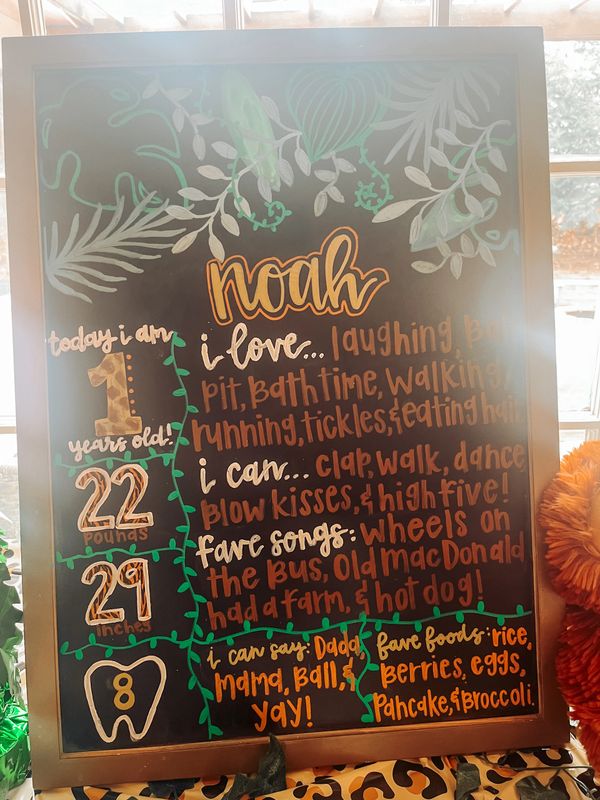 noah
today i am
1
years old!
22
pounds
29
inches
8
i love... laughing, Ball
Pit, Bath time, Walking,
running, tickles, & eating hair
i can... clap, walk, dance
Blow kisses, & high five!
fave songs: wheels on
the Bus, Old macDonald
had a farm, & hot dog!
i can say: Dada,
Mama, Ball, &
yay!
fave foods: rice,
Berries, eggs,
Pancake, & Broccoli.